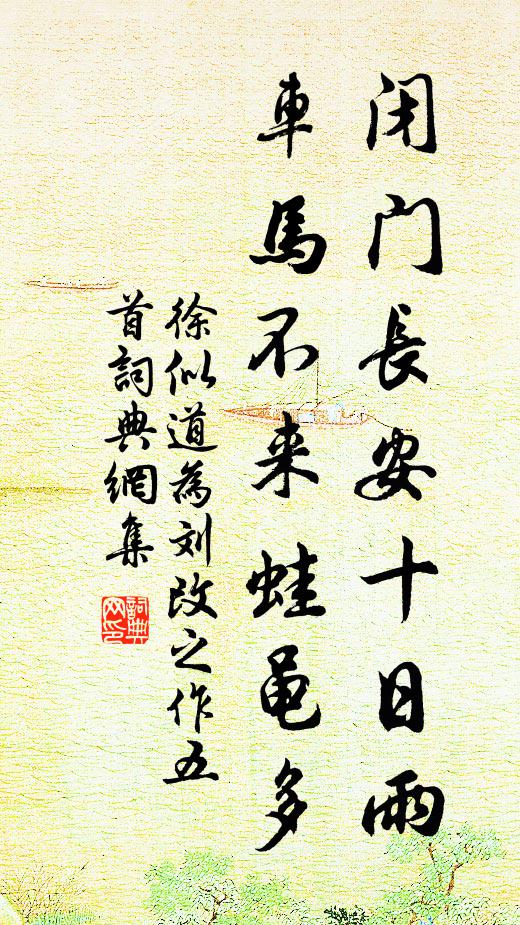 闭门長安十日雨
車馬不来蛙黾多
徐似道為刘改之作五
首詞典網集
詞典
网印